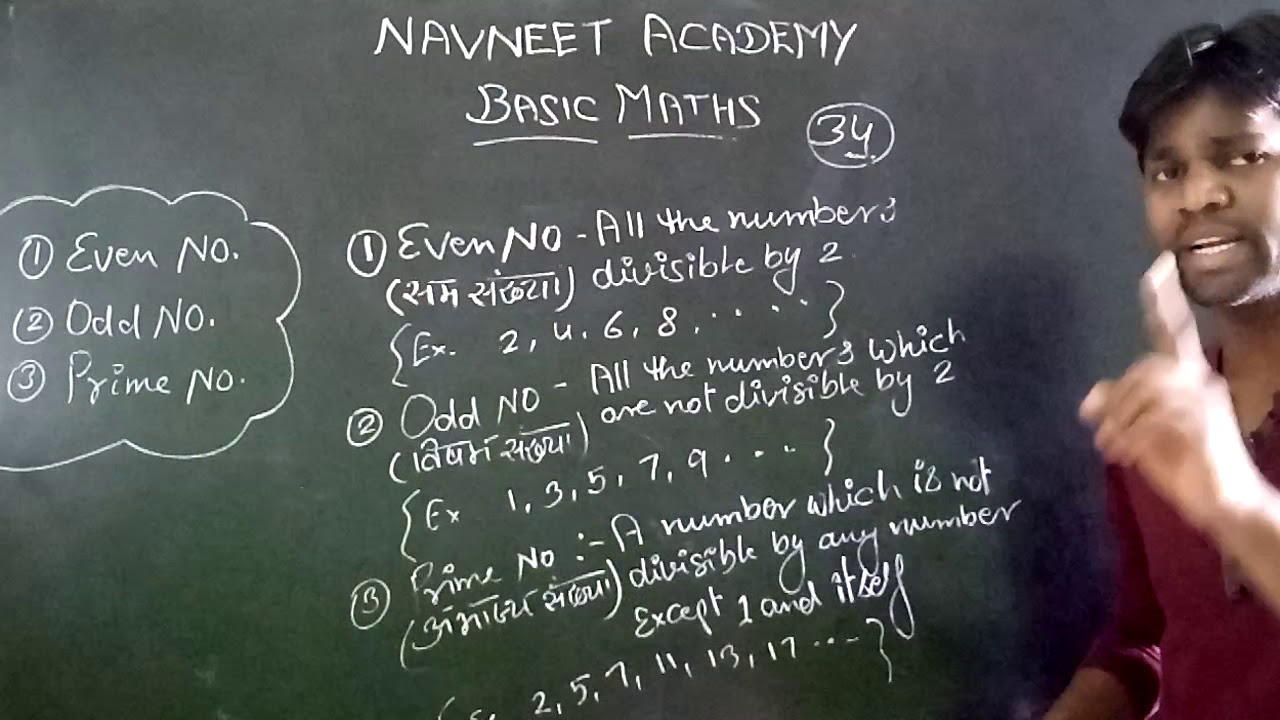 NAVNEET ACADEMY
BASIC MATHS
34
① Even NO.
② Odd NO.
③ Prime NO.
① Even NO - All the numbers
(सम संख्या) divisible by 2.
{Ex. 2, 4, 6, 8, . . . . }
② Odd NO - All the numbers which
(विषम संख्या) are not divisible by 2
{Ex 1, 3, 5, 7, 9 . . . . }
③ Prime NO :- A number which is not
(अभाज्य संख्या) divisible by any number
Except 1 and itself
2, 5, 7, 11, 13, 17 . . . }